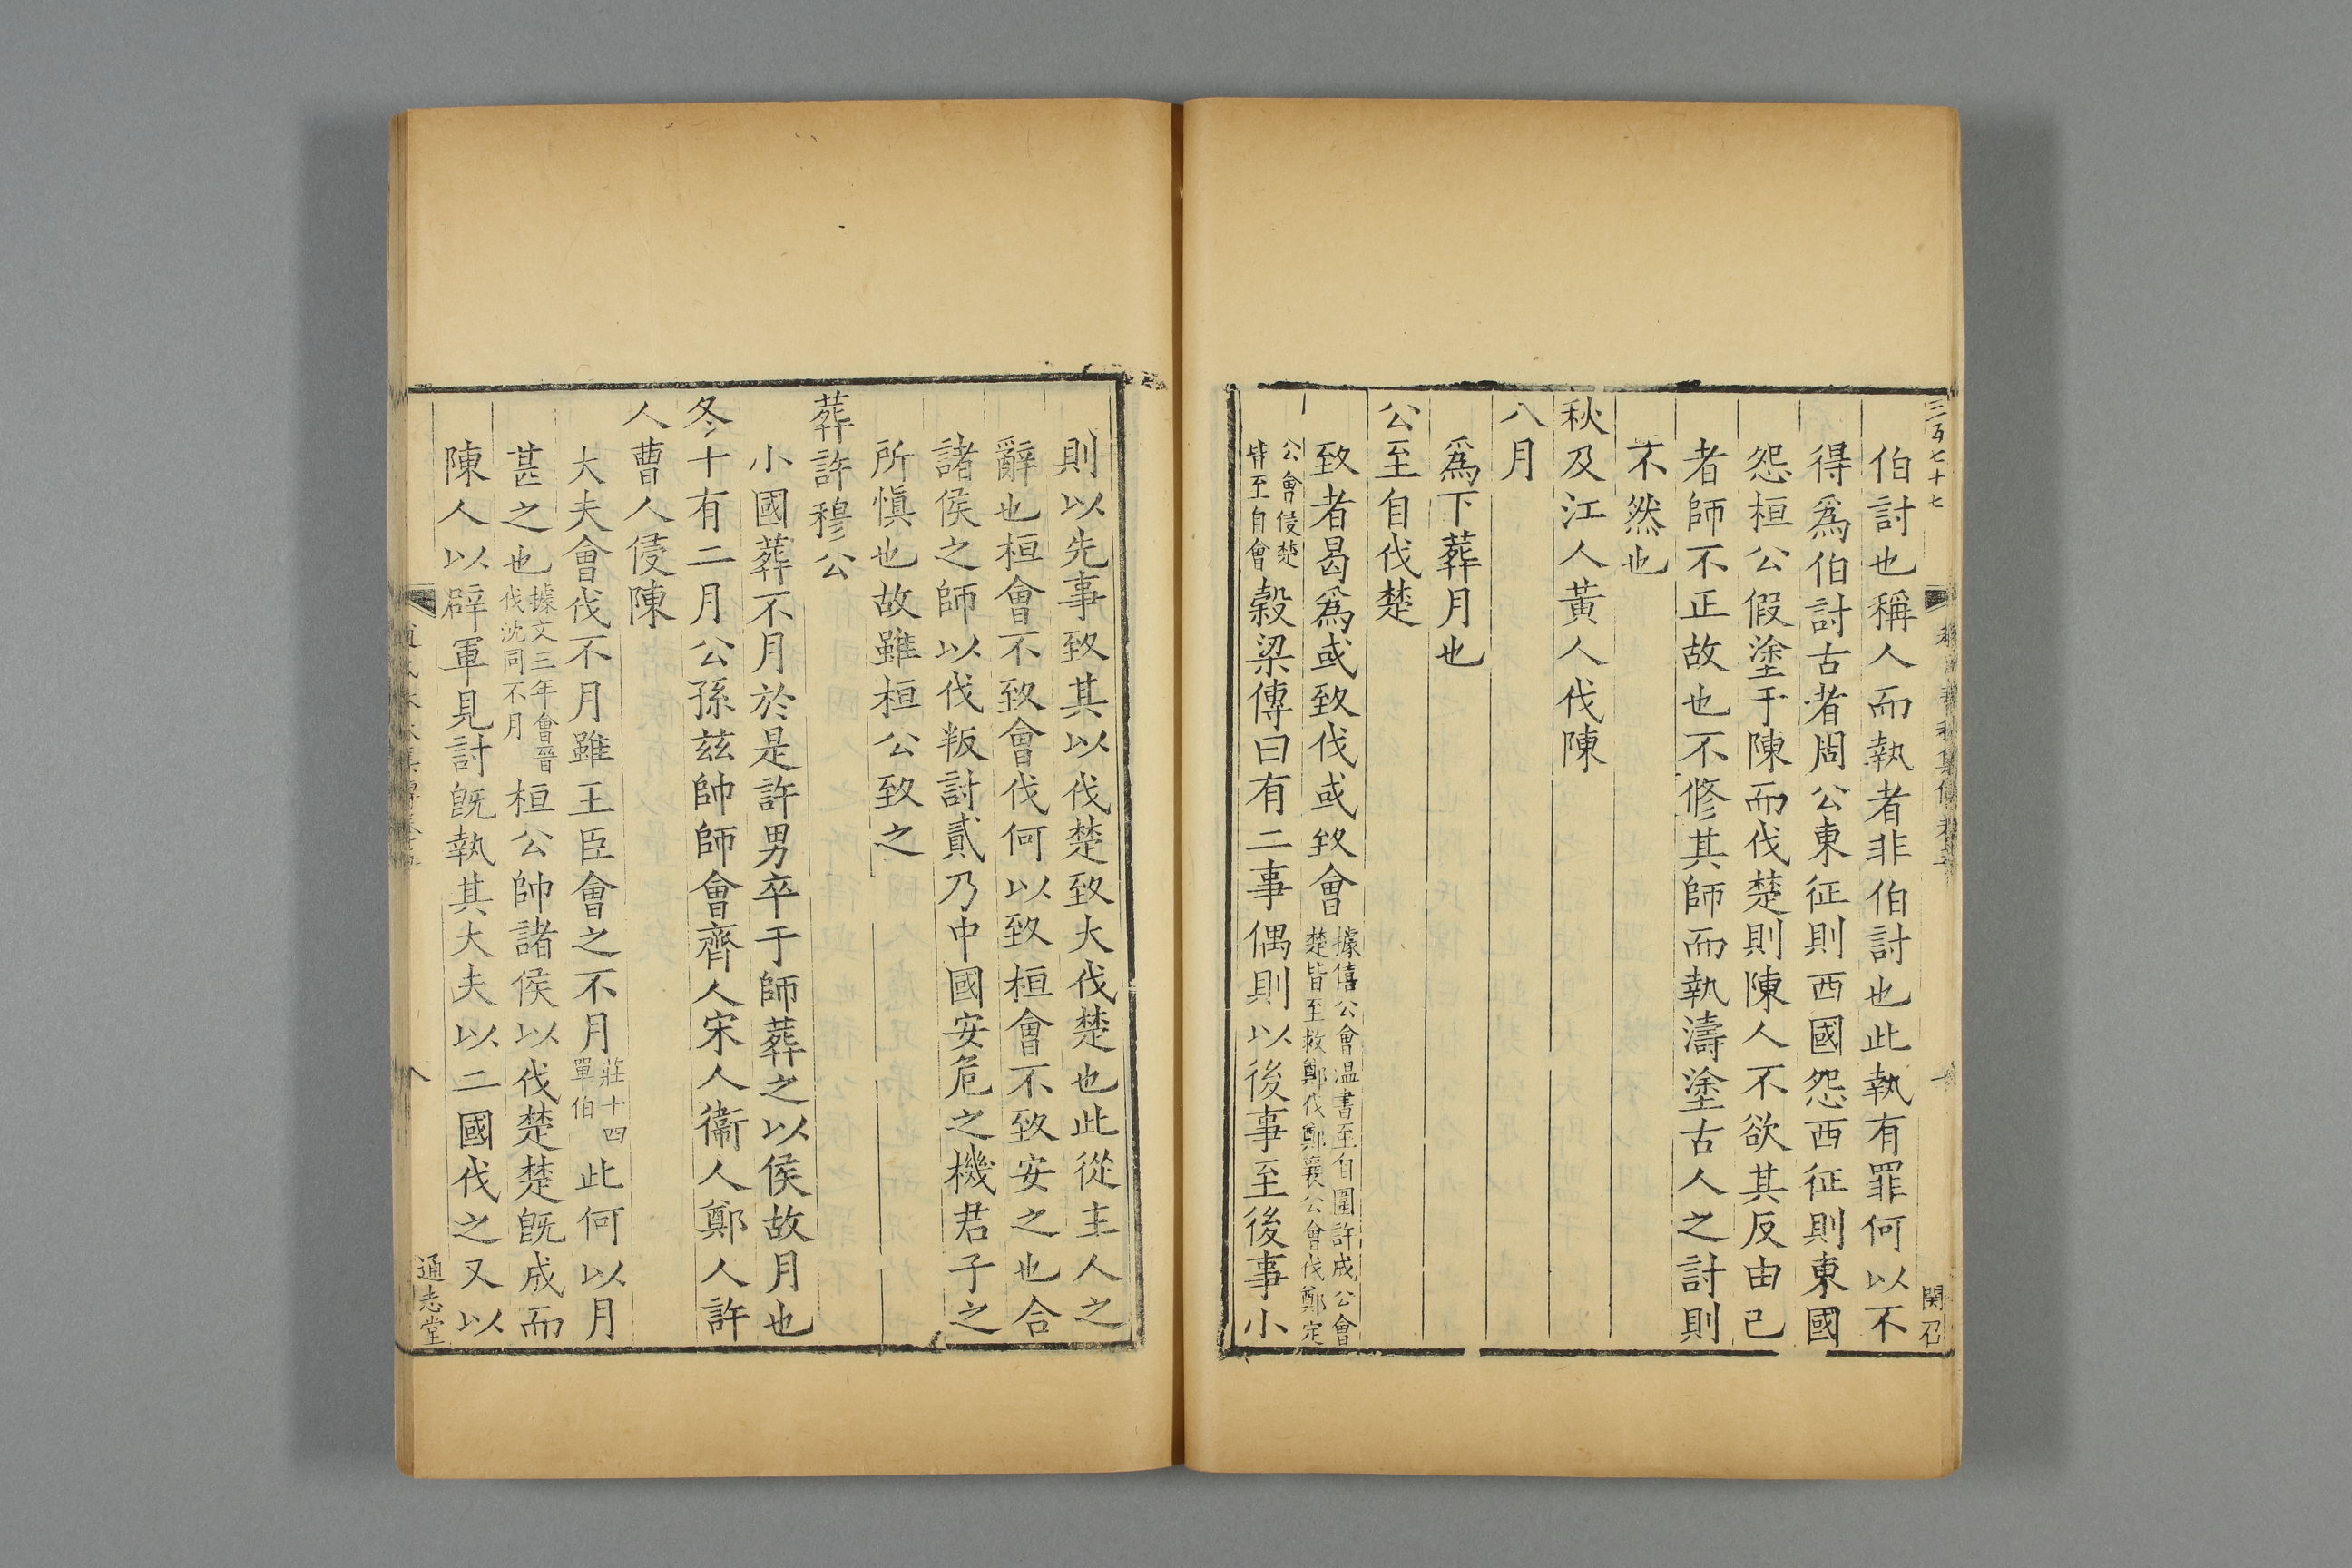 三百七十七
関召
伯討也稱人而執者非伯討也此執有罪何以不
得爲伯討古者周公東征則西國怨西征則東國
怨桓公假塗于陳而伐楚則陳人不欲其反由己
者師不正故也不脩其師而執濤塗古人之討則
不然也
秋及江人黃人伐陳
八月
爲下葬月也
公至自伐楚
致者曷爲或致伐或致會據僖公會温書至自圍許成公會
楚皆至救鄭伐鄭襄公會伐鄭定
公會侵楚
皆至自會穀梁傳曰有二事偶則以後事至後事小
則以先事致其以伐楚致大伐楚也此從主人之
辭也桓會不致會伐何以致桓會不致安之也合
諸侯之師以伐叛討貳乃中國安危之機君子之
所愼也故雖桓公致之
葬許穆公
小國葬不月於是許男卒于師葬之以侯故月也
冬十有二月公孫茲帥師會齊人宋人衞人鄭人許
人曹人侵陳
大夫會伐不月雖王臣會之不月莊十四
單伯此何以月
甚之也據文三年會晉
伐沈同不月桓公帥諸侯以伐楚楚既成而
陳人以辟軍見討旣執其大夫以二國伐之又以
八
通志堂